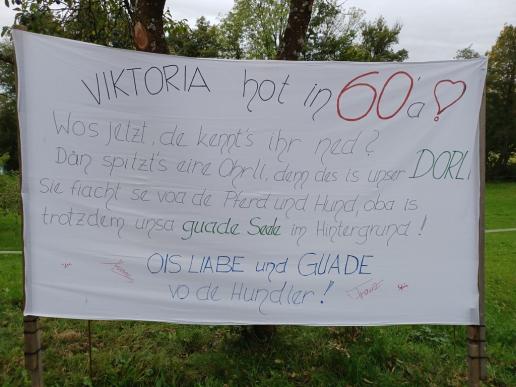 VIKTORIA hot in 60'a
Wos jetzt, de kennt's ihr ned?
Dån spitzt's eire Ohrli, denn des is unser DORLI
Sie fiacht se voa de Pferd und Hund, oba is
trotzdem unsa guade Seele im Hintergrund!
OIS LIABE und GUADE
vo de Hundler!